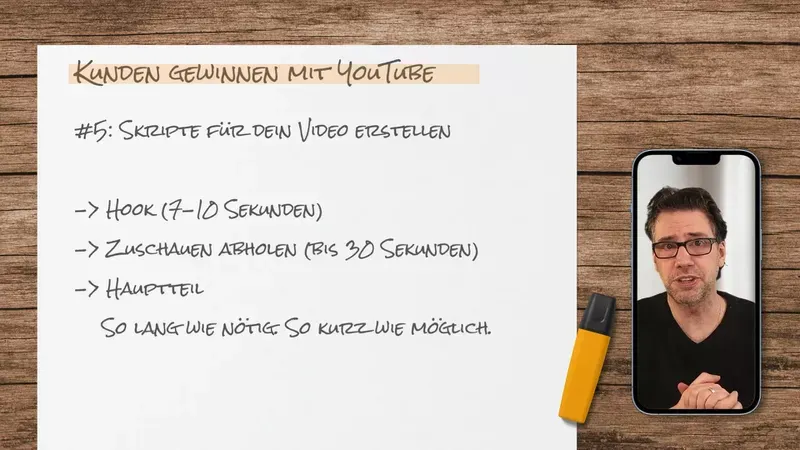 Kunden gewinnen mit YouTube
#5: Skripte für dein Video erstellen
-> Hook (7-10 Sekunden)
-> Zuschauen abholen (bis 30 Sekunden)
-> Hauptteil
So lang wie nötig. So kurz wie möglich.